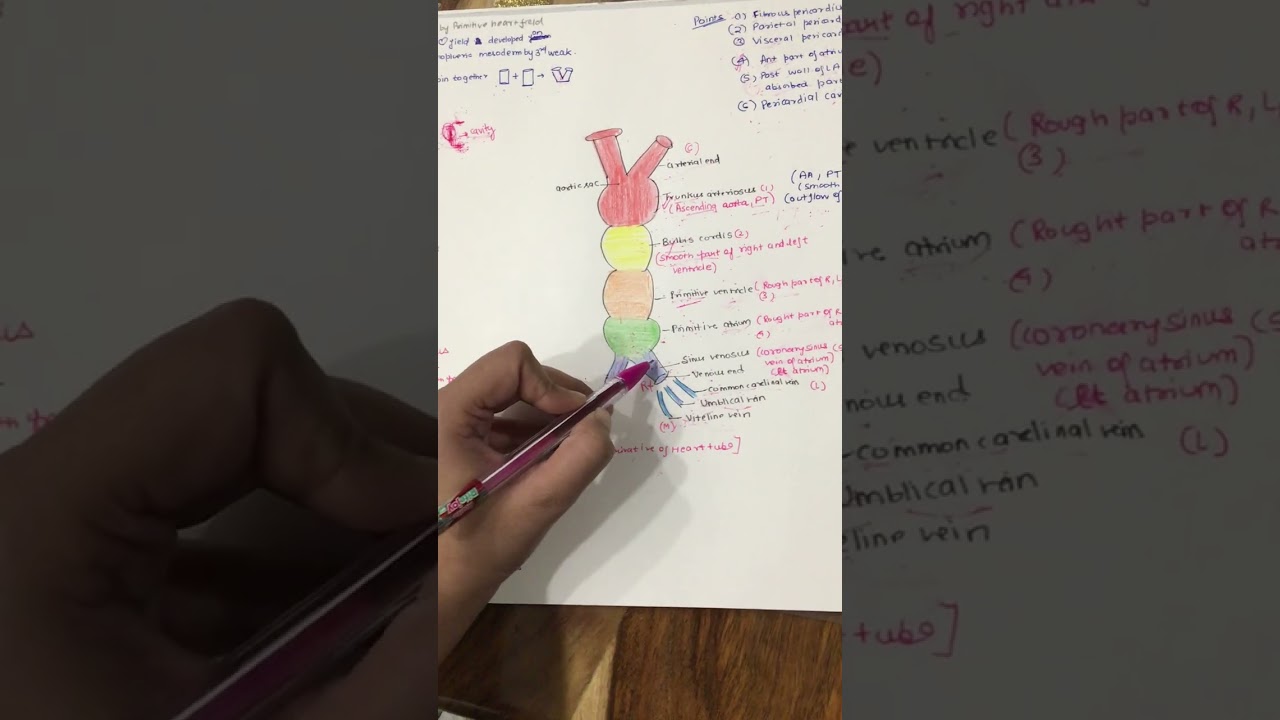 by Primitive heart field
yield developed on
mesoderm by 3rd weak.
together + →
cavity
Points 01 Fibrous pericardiu
(2) Parietal pericard
(3) Visceral pericar
(4) Ant part of atriu
(5) Post wall of LA
absorbed part
(6) Pericardial cav
(6)
arterial end
aortic sac
Trunkus arteriosus (1)
(Ascending aorta, PT)
(AA, PT
(smooth
(outflow of
Bulbus cordis (2)
(smooth part of right and left
ventricle)
Primitive ventricle (Rough part of R, L
(3)
Primitive atrium (Rought part of R
at
(4)
Sinus venosus (coronary sinus
vein of atrium)
Venous end (Rt atrium)
common cardinal vein (L)
Umblical van
Viteline vein
(M)
ivative of Heart tube]
part of right
e)
ventricle (Rough part of R, L
(3)
ive atrium (Rought part of R
at
(4)
venosus (coronary sinus
vein of atrium)
nous end (Rt atrium)
common cardinal vein (L)
Umblical van
eline vein
tube]